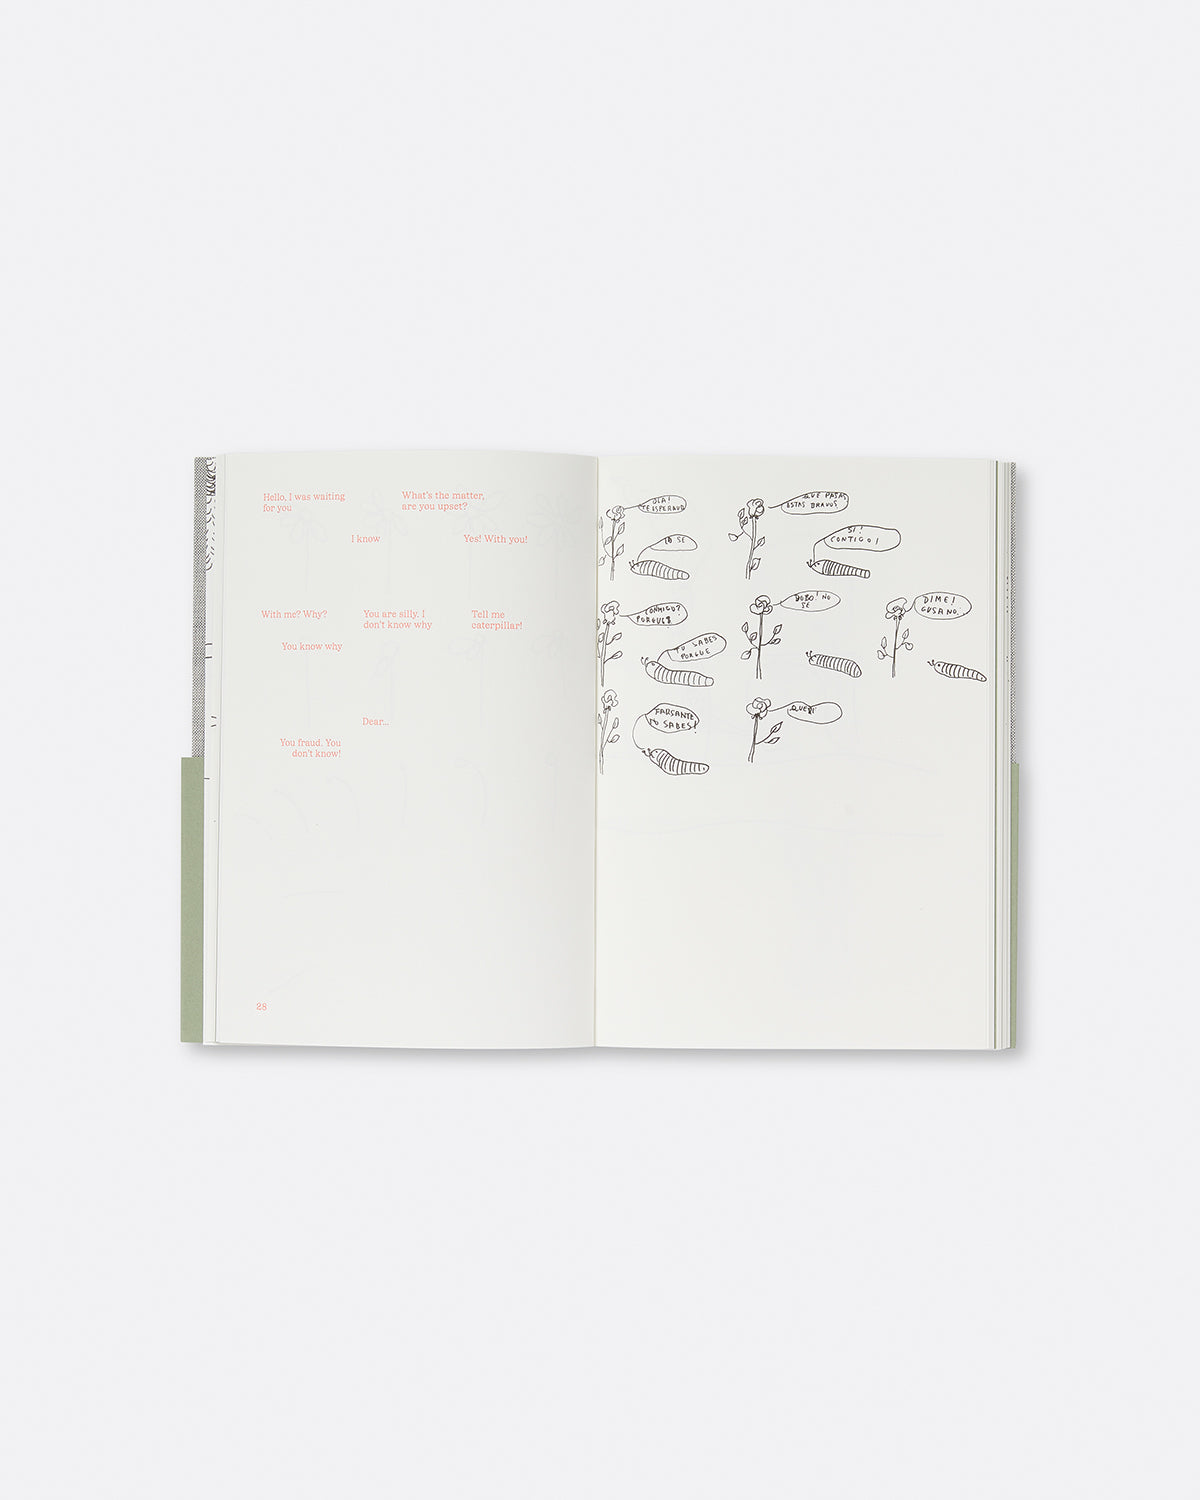 Hello, I was waiting
for you
What's the matter,
are you upset?
I know
Yes! With you!
With me? Why?
You are silly. I
don't know why
Tell me
caterpillar!
You know why
Dear...
You fraud. You
don't know!
28
OLA!
TE ESPERABA
QUE PASA,
ESTAS BRAVUS
YO SE
SI!
CONTIGO!
CONMIGO?
PORQUE?
BOBO! NO
SE
DIME!
GUSANO.
TU SABES
PORQUE
FARSANTE
NO SABES!